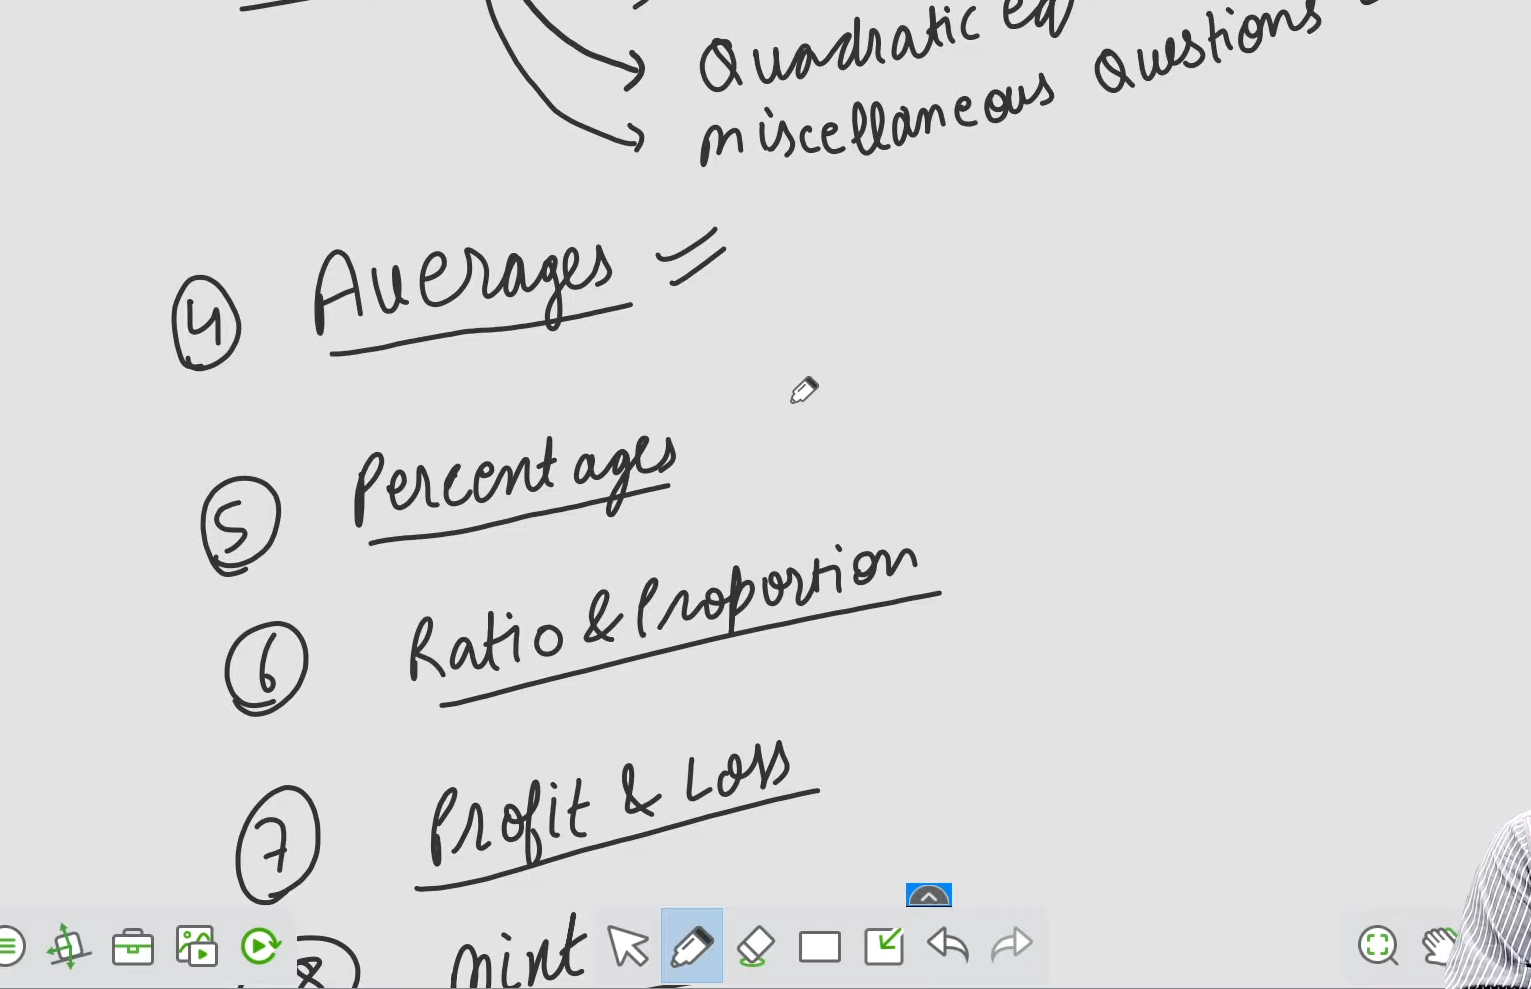 Quadratic eq
miscellaneous Questions
④ Averages =
⑤ Percentages
⑥ Ratio & Proportion
⑦ Profit & Loss
⑧